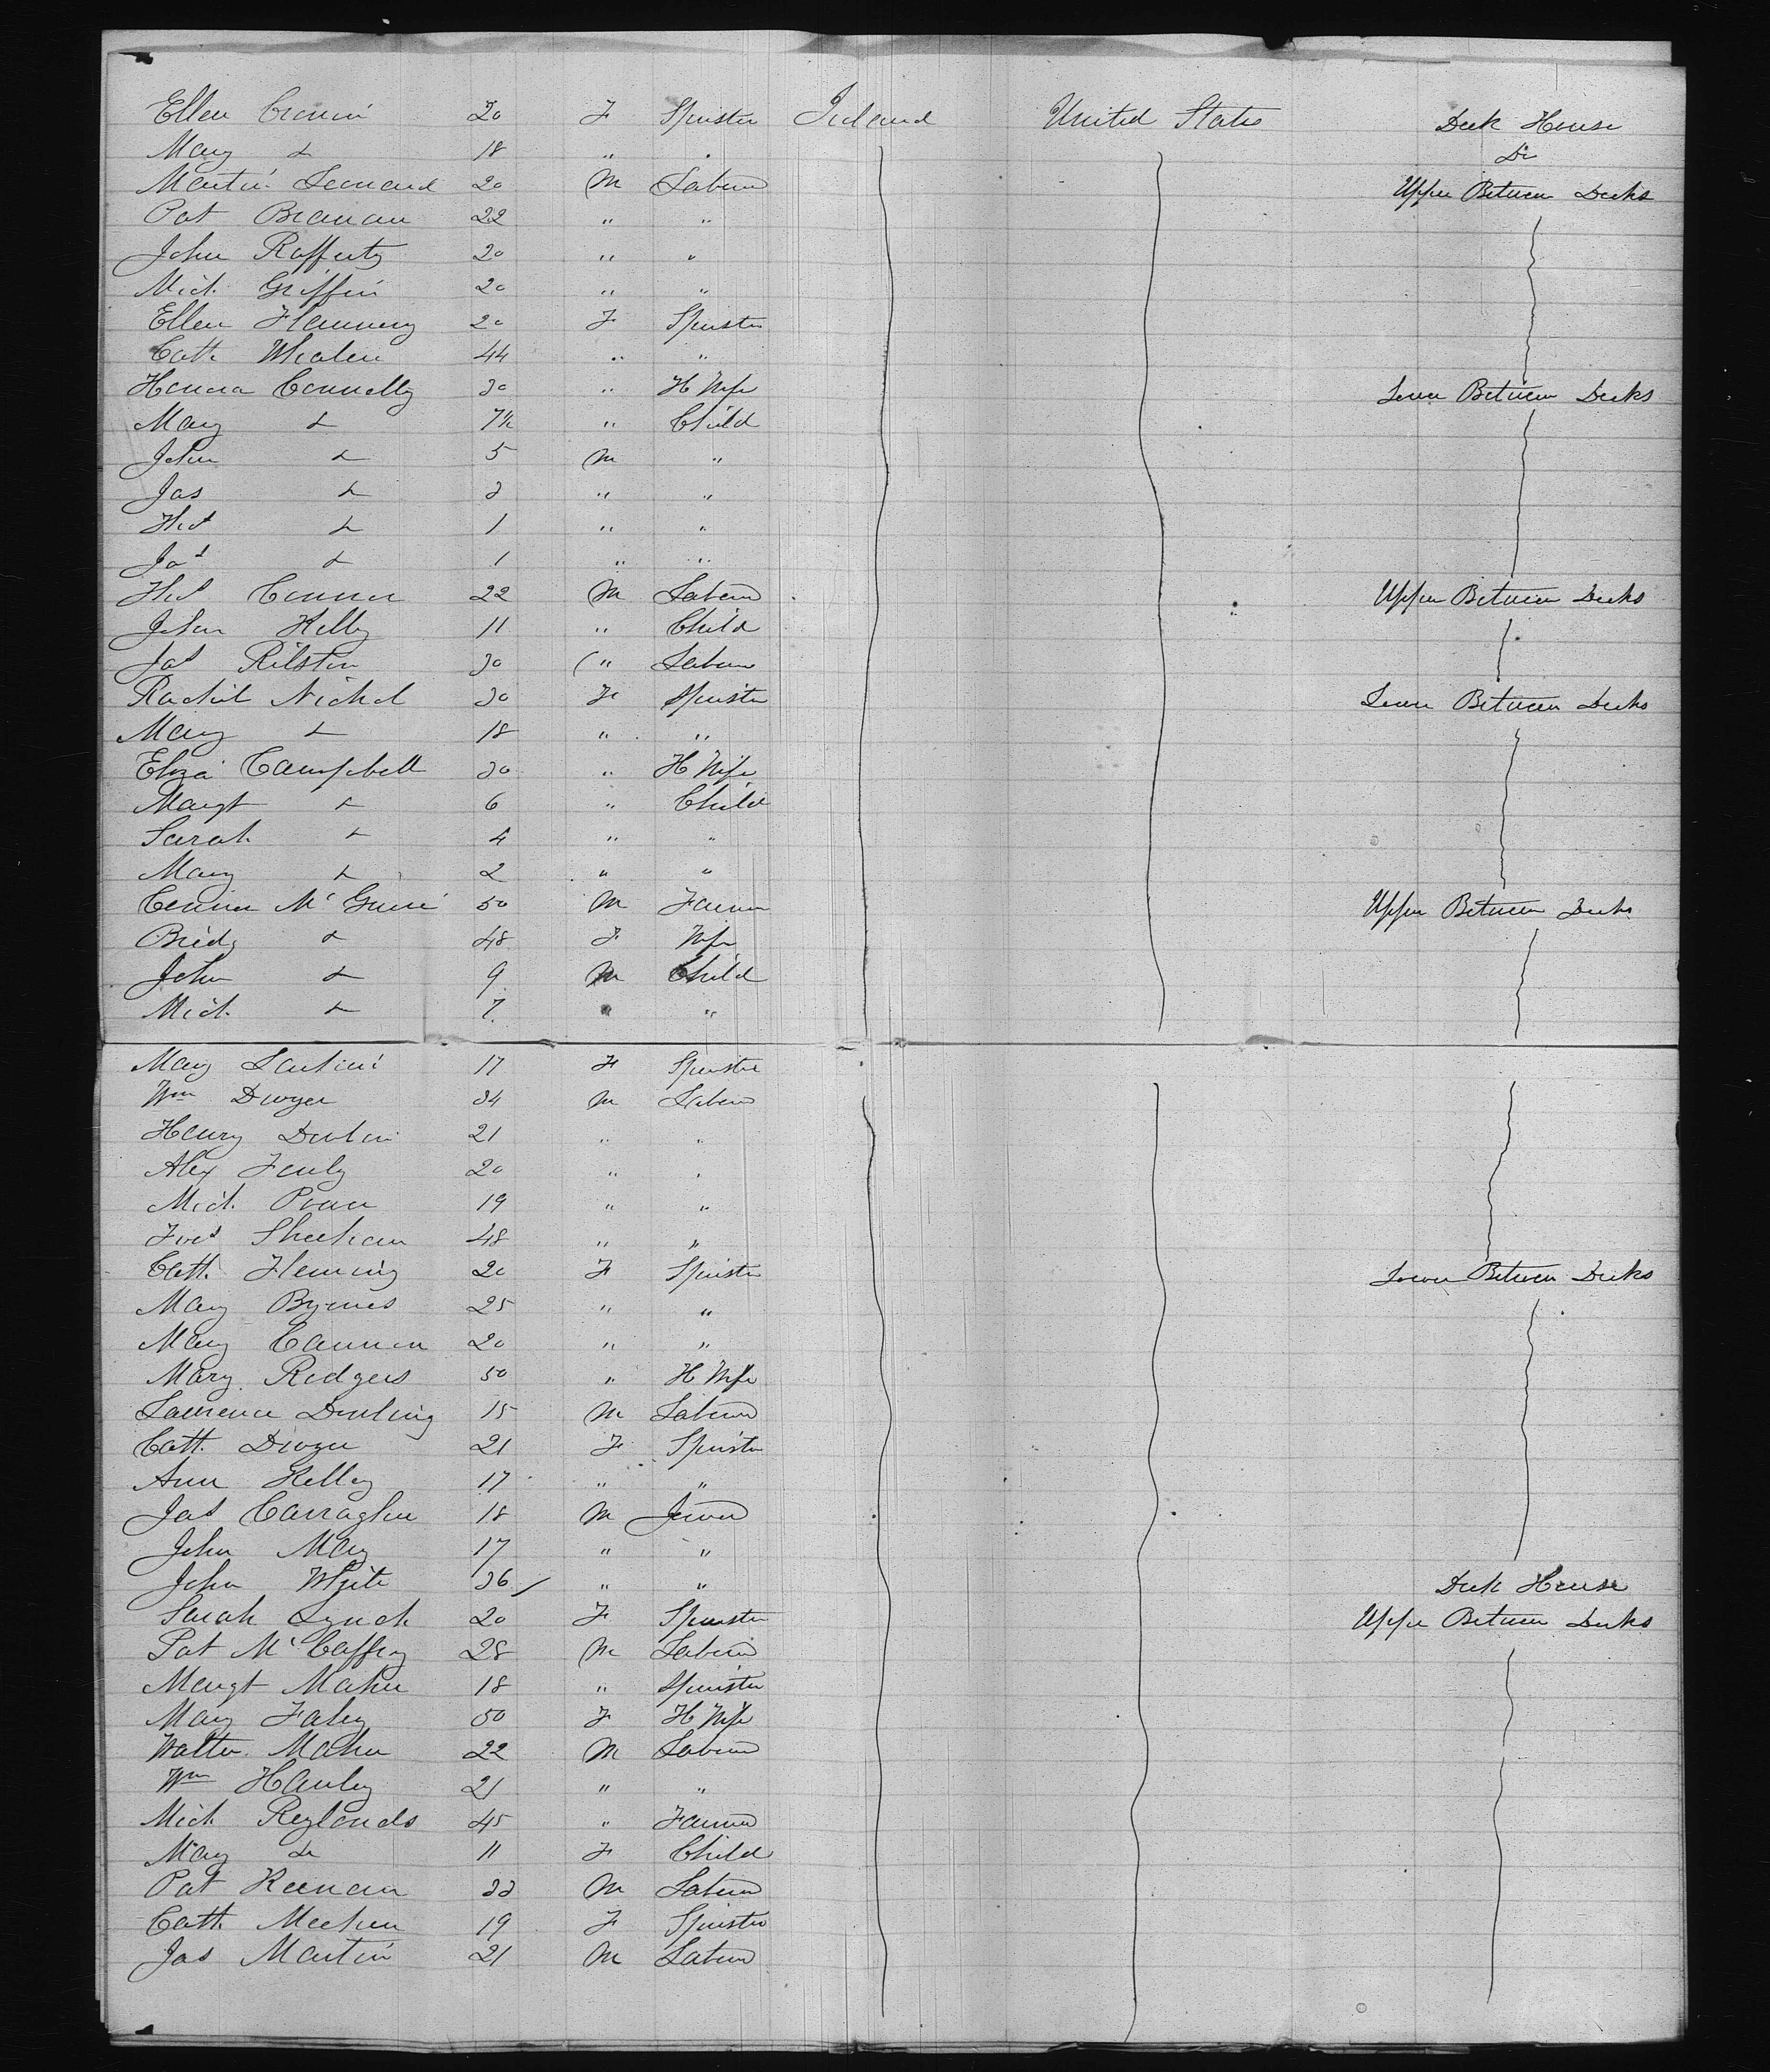 Ellen Cronin 20 F Spinster Ireland United States Deck House
Mary Do 18 " " Do
Martin Leonard 20 M Laborer Upper Between Decks
Pat Branan 22 " "
John Rafferty 20 " "
Mich. Griffin 20 " "
Ellen Flannery 20 F Spinster
Cath. Whalen 44 " "
Honora Connelly 30 " H Wife Lower Between Decks
Mary Do 7½ " Child
John Do 5 M "
Jas Do 3 " "
Do 1 " "
Jas Do 1 " "
Connor 22 M Laborer Upper Between Decks
John Kelly 11 " Child
Jas Rilston 30 " Laborer
Rachel Nichol 30 F Spinster Lower Between Decks
Mary Do 18 " "
Eliza Campbell 30 " H Wife
Margt Do 6 " Child
Sarah Do 4 " "
Mary Do 2 " "
Connor Mc 50 M Farmer Upper Between Decks
Bridg Do 48 F Wife
John Do 9 M Child
Mich. Do 7 " "
Mary 17 F Spinster
Wm Dwyer 34 M Laborer
Henry 21 " "
Alex 20 " "
Mich. 19 " "
Sheehan 48 " "
Cath. Fleming 20 F Spinster Lower Between Decks
Mary Byrnes 25 " "
Mary Cannon 20 " "
Mary Rodgers 50 " H Wife
Lawrence Dowling 15 M Laborer
Cath. Dwyer 21 F Spinster
Ann Kelley 17 " "
Jas Carragher 18 M
John May 17 " "
John White 36 " " Deck House
Sarah Lynch 20 F Spinster Upper Between Decks
Pat McCaffrey 28 M Laborer
Margt Maher 18 " Spinster
Mary Fahey 50 F H Wife
Walter Maher 22 M Laborer
Wm Hanley 21 " "
Mich Reylonds 45 " Farmer
Mary Do 11 F Child
Pat Keenan 33 M Laborer
Cath. Meehan 19 F Spinster
Jas Martin 21 M Laborer